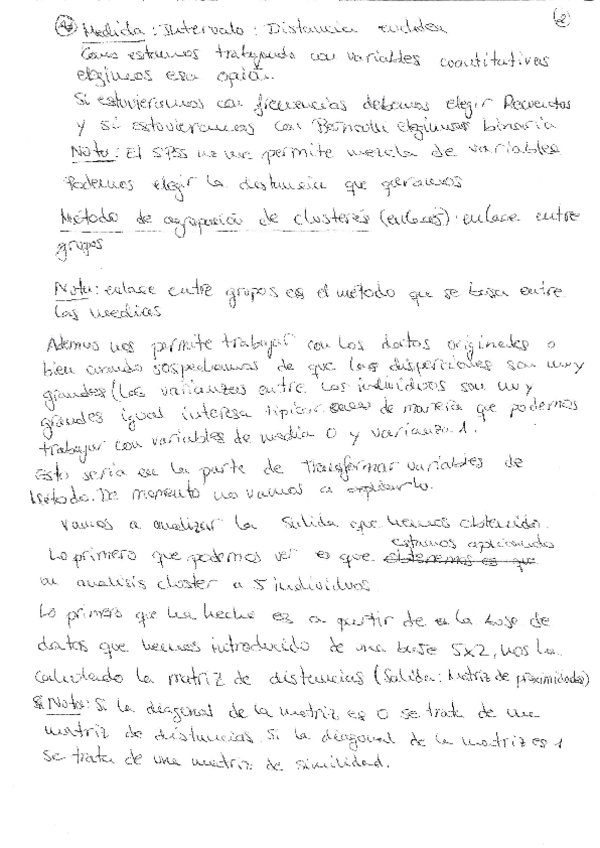 Medida: Intervalo: Distancia euclídea
Como estamos trabajando con variables cuantitativas
elegimos esa opción.
Si estuvieramos con frecuencias debemos elegir Recuentos
y si estuvieramos con Bernoulli elegimos binaria
Nota: El SPSS no me permite mezcla de variables
Podemos elegir la distancia que queramos
Método de agrupación de clusteres (enlaces): enlace entre
grupos
Nota: enlace entre grupos es el método que se basa entre
las medias
Ademas nos permite trabajar con los datos originales o
bien cuando sospechamos de que las dispersiones son muy
grandes (las varianzas entre los individuos son muy
grandes igual interesa tipificar de manera que podemos
trabajar con variables de media 0 y varianza 1.
Esto sería en la parte de Transformar variables de
Método. De momento no vamos a
Vamos a analizar la salida que hemos obtenido.
estamos aplicando
Lo primero que podemos ver es que obtenemos es que
un analisis cluster a 5 individuos
Lo primero que ha hecho es a partir de en la base de
datos que hemos introducido de una base 5x2, nos ha
calculado la matriz de distancias (Salida: Matriz de proximidades)
Nota: Si la diagonal de la matriz es 0 se trata de una
matriz de distancias. Si la diagonal de la matriz es 1
se trata de una matriz de similidad.